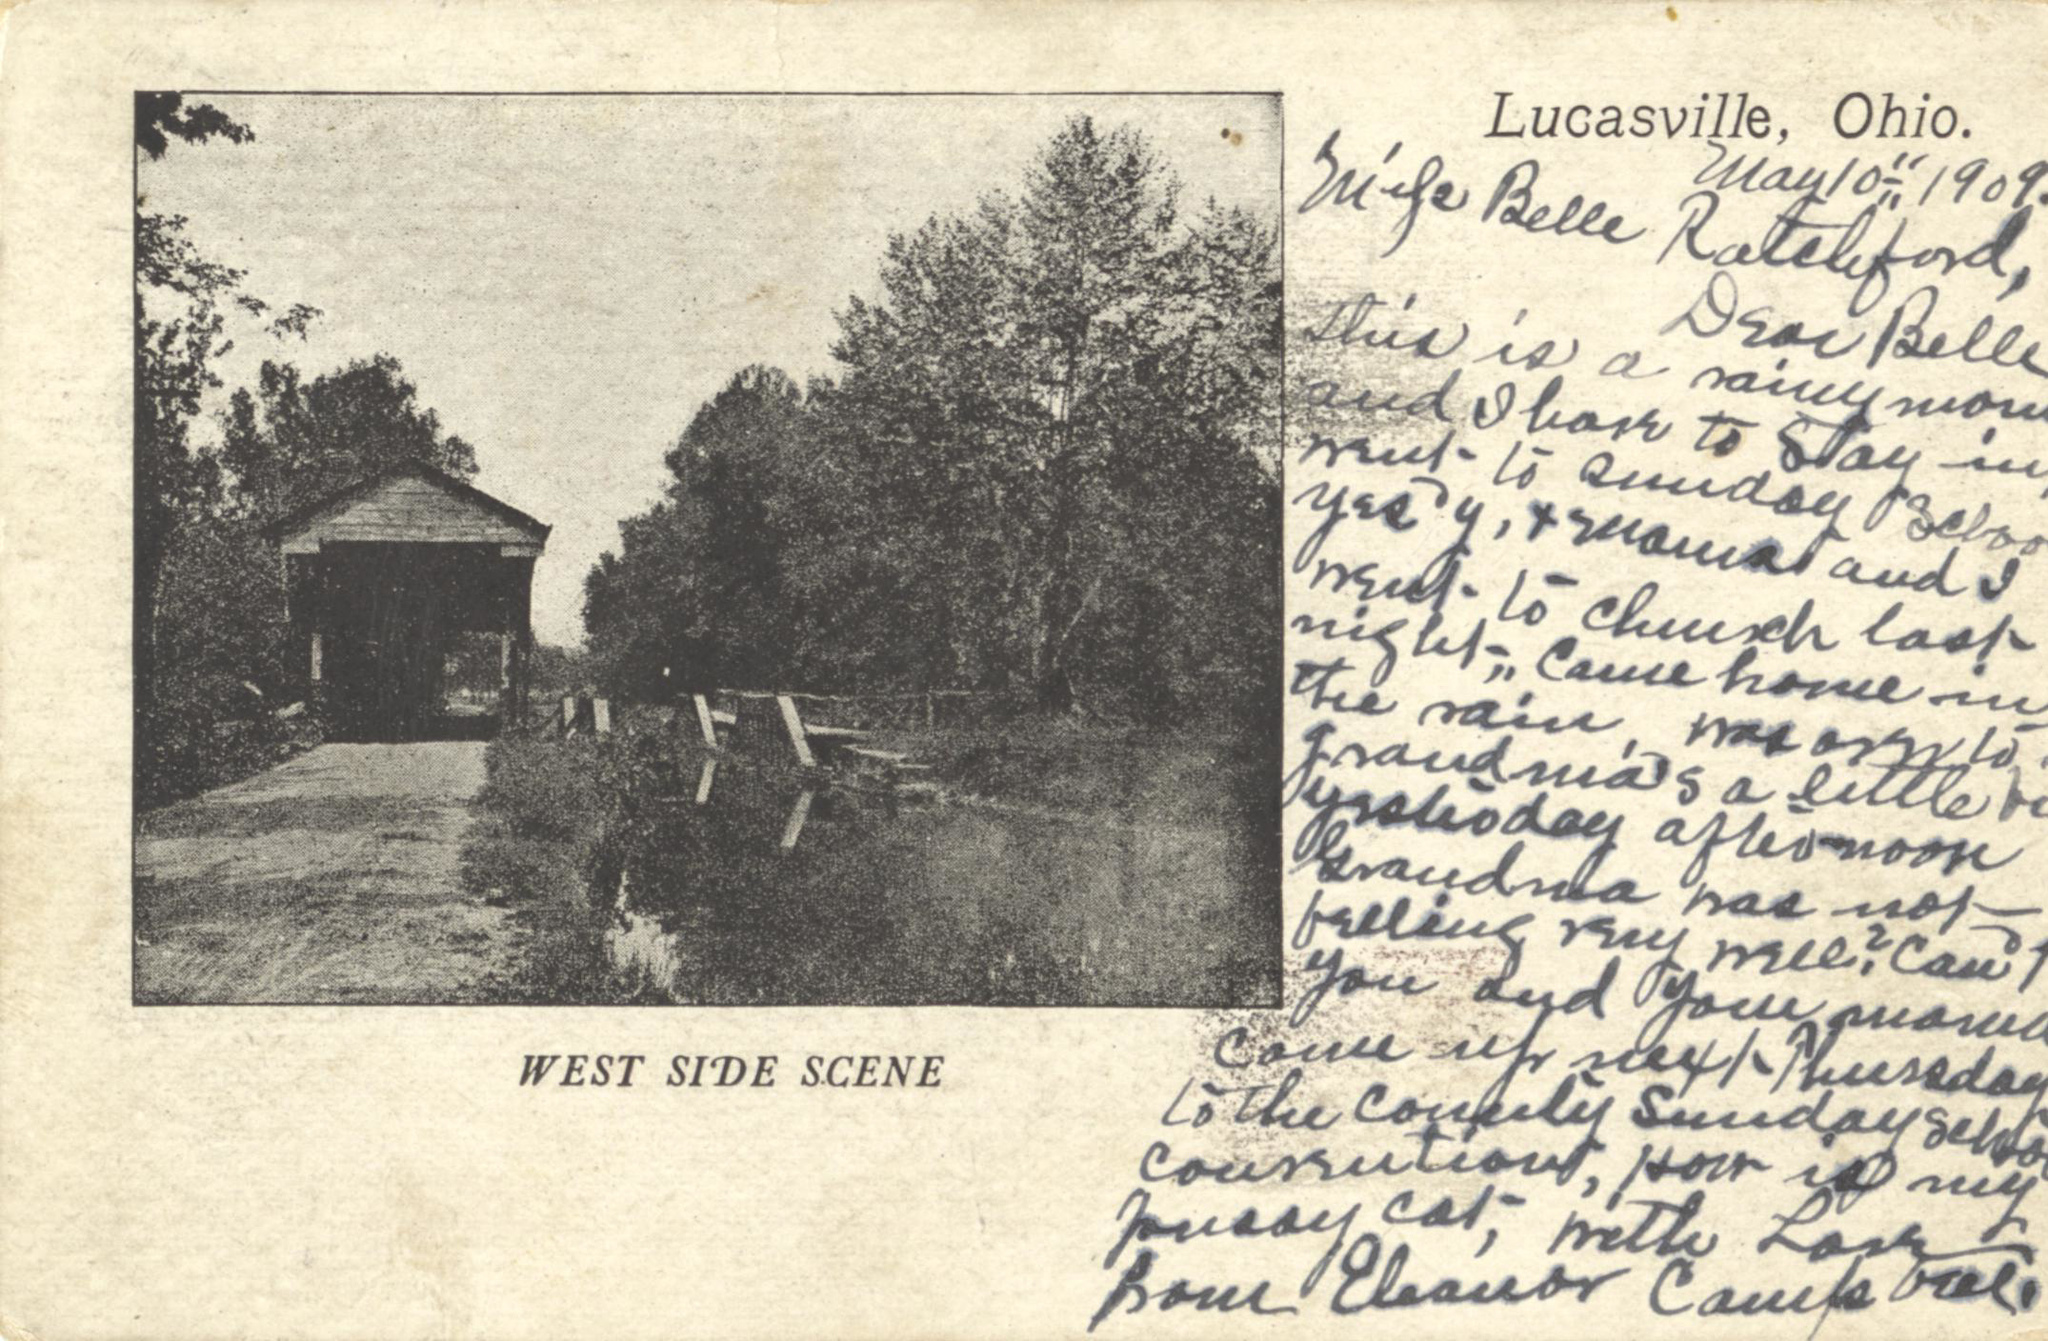 Lucasville, Ohio.
May 10" 1909.
Miss Belle Ratcliford,
Dear Belle
this is a rainy morn
and I have to stay in,
went to Sunday Schoo
yes'y, & Mama and I
went to church last
night, came home in
the rain, was over to
grandma's a little
yesterday afternoon
Grandma was not
feeling very well? Can't
you and your mama
come up next Thursday
to the County Sunday School
convention, How is my
pussy cat, with Love
from Eleanor Campbell.
WEST SIDE SCENE